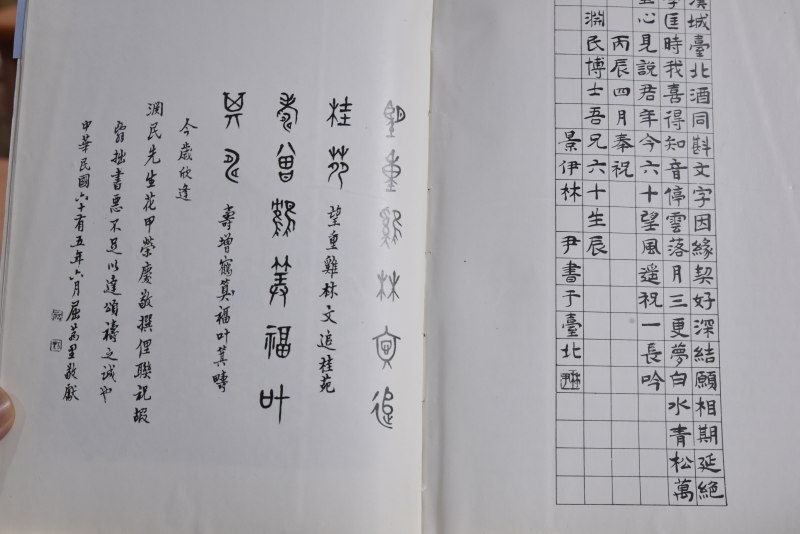 漢城臺北酒同斟文字因緣契好深結願相期延絕
學匡時我喜得知音停雲落月三更夢白水青松萬
里心見說君年今六十望風遙祝一長吟
丙辰四月奉祝
淵民博士吾兄六十生辰
景伊林 尹書于臺北
望重雞林文追
桂苑 望重雞林文追桂苑
壽曾鶴筭福叶
箕疇 壽增鶴筭福叶箕疇
今歲欣逢
淵民先生花甲榮慶敬撰俚聯祝嘏
拙書惡不足以達頌禱之誠也
中華民國六十有五年六月屈萬里敬獻